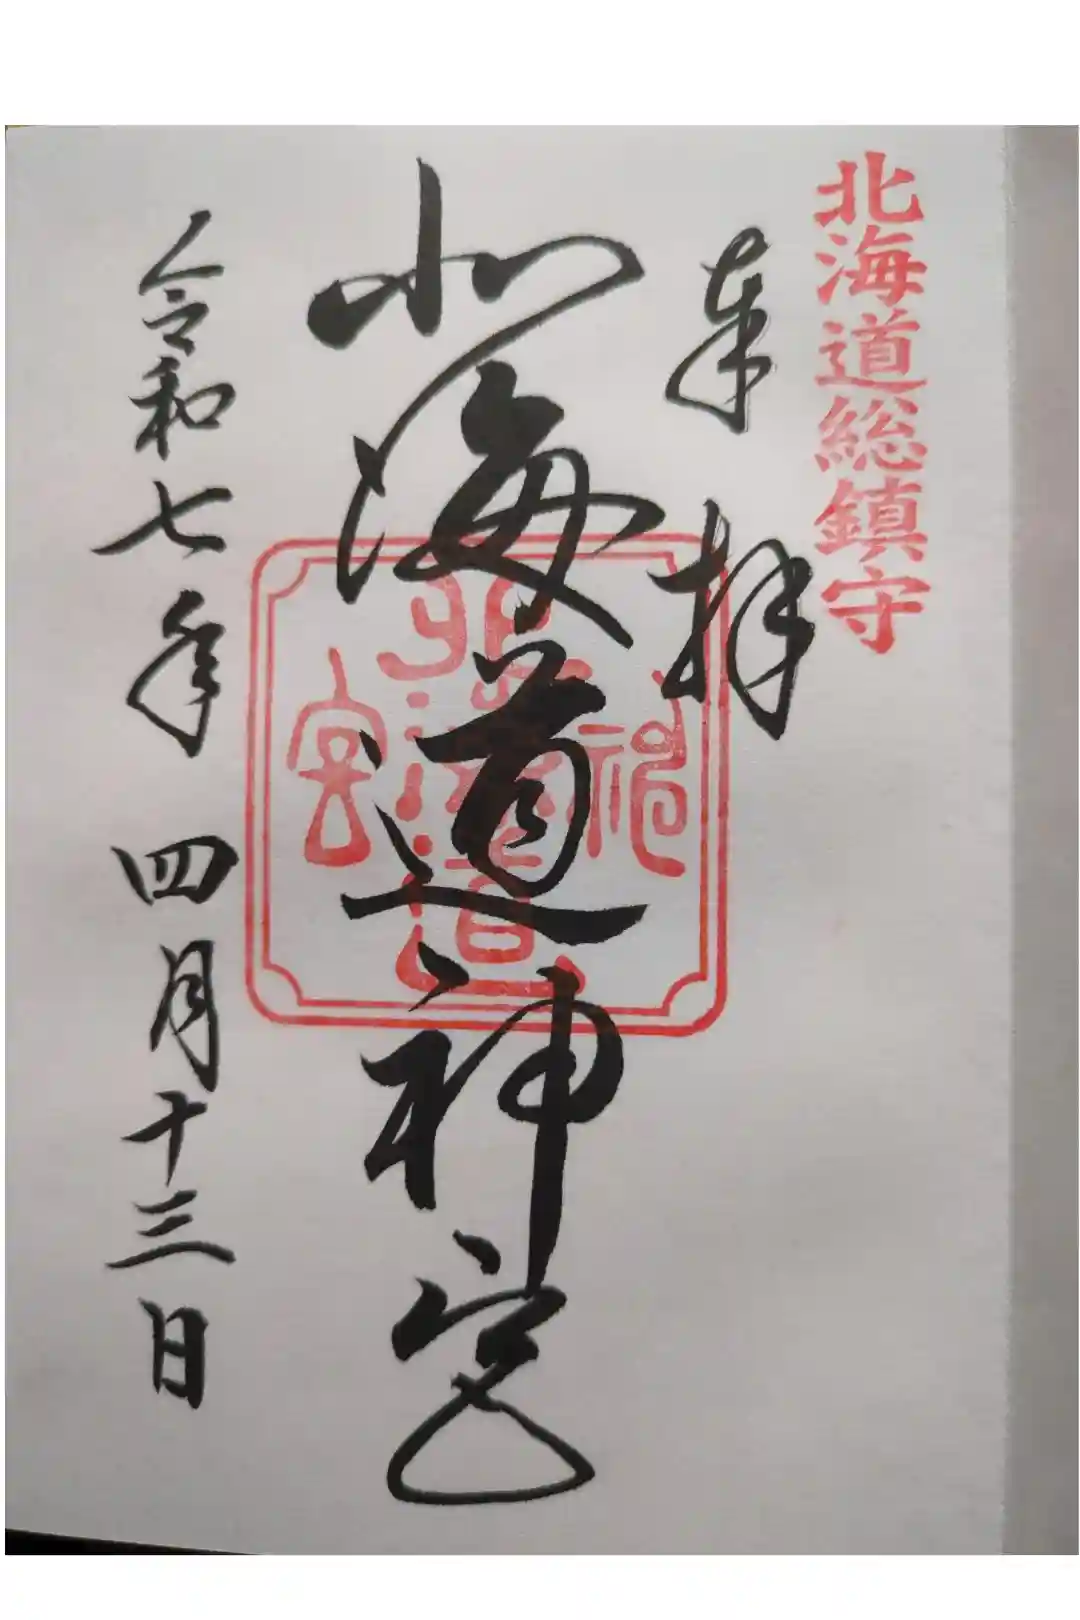 北海道総鎮守
奉拝
北海道神宮
北海道神宮
令和七年四月十三日